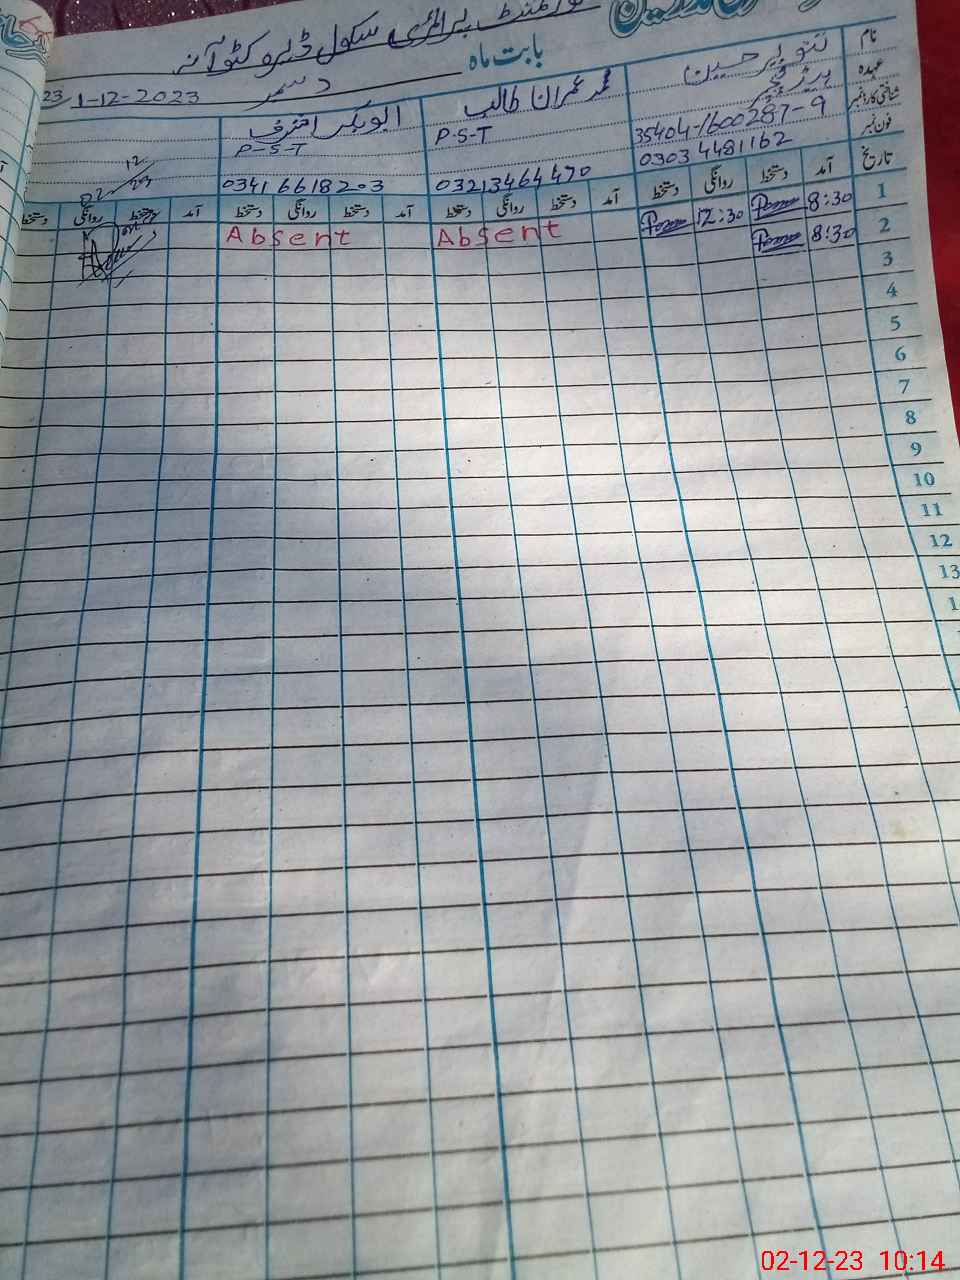 گورنمنٹ پرائمری سکول
بابت ماہ دسمبر 1-12-2023
نام تنویر حسین محمد عمران طالب ابوبکر اشرف
عہدہ ہیڈ ٹیچر P-S-T P-S-T
شناختی کارڈ نمبر 35404-1600287-9
فون نمبر 0303 4481162 03213464470 0341 6618203
تاریخ آمد دستخط روانگی دستخط آمد دستخط روانگی دستخط آمد دستخط روانگی دستخط آمد دستخط روانگی دستخط
1 8:30 12:30
2 8:30 Absent Absent
3
4
5
6
7
8
9
10
11
12
13
02-12-23 10:14